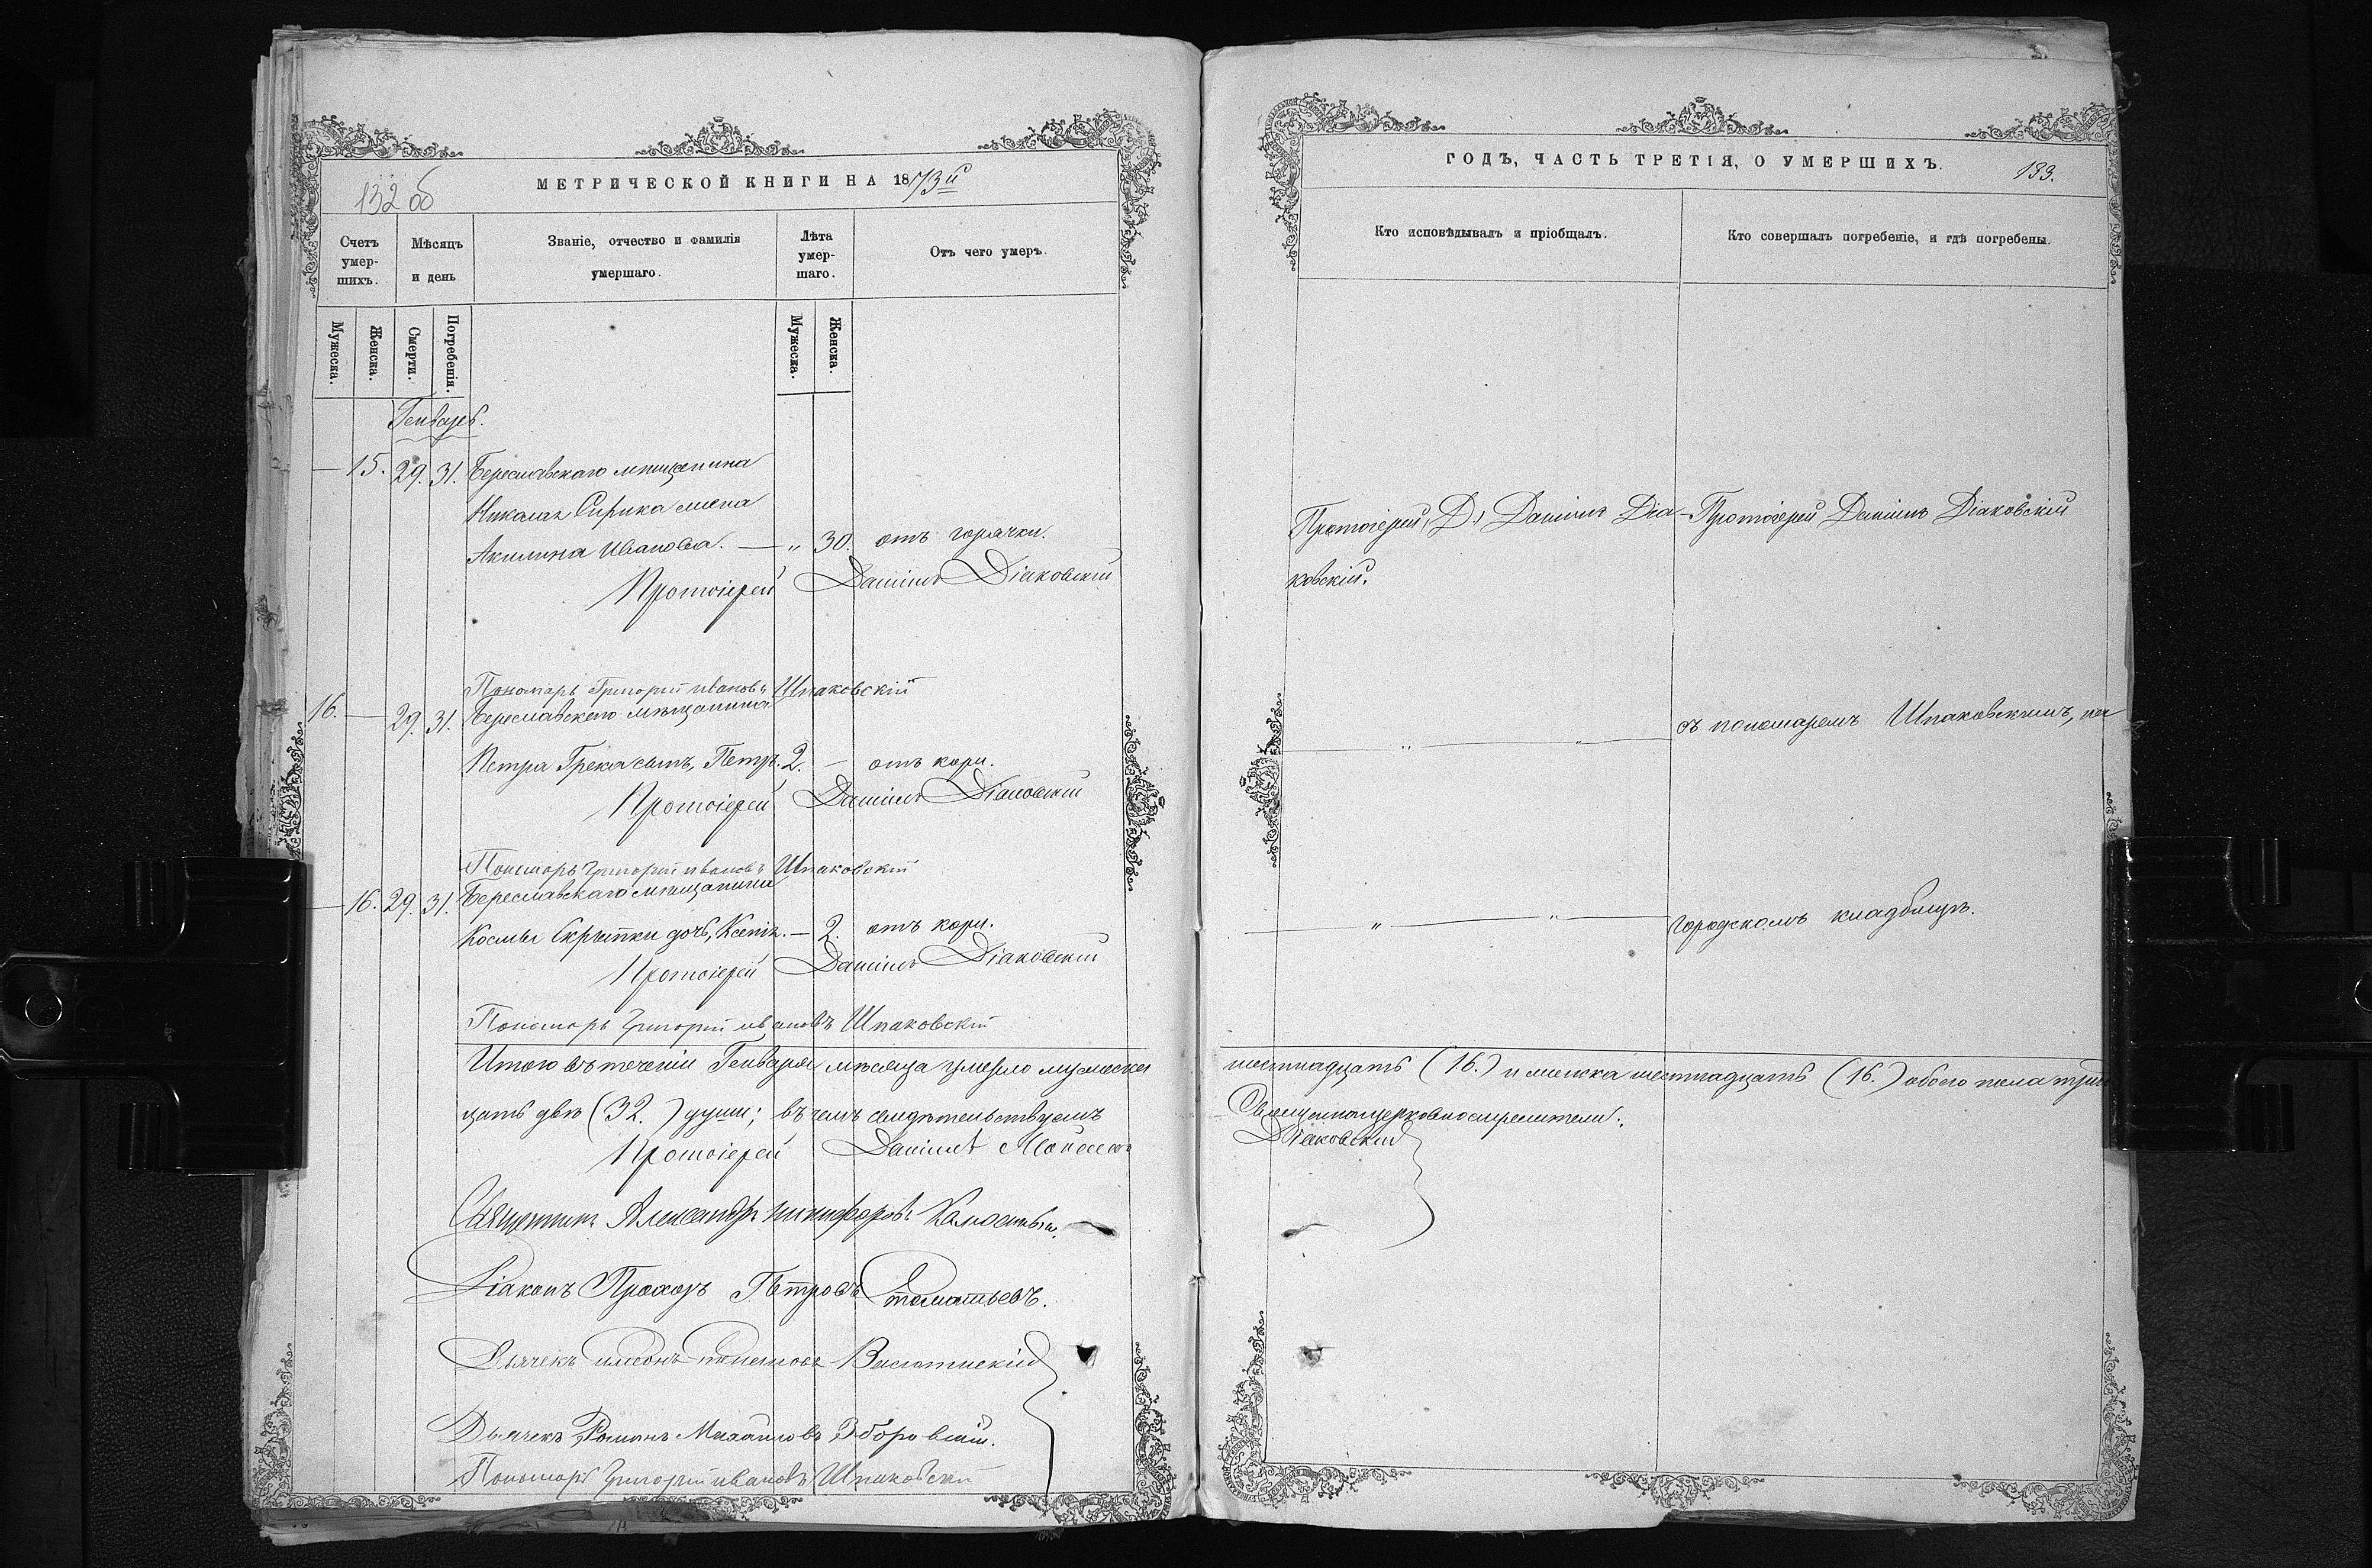 132 об
МЕТРИЧЕСКОЙ КНИГИ НА 1873й
Счетъ умер-шихъ.
Мѣсяцъ и день
Званіе, отчество и фамилія умершаго.
Лѣта умер-шаго.
Отъ чего умеръ.
Мужеска.
Женска.
Смерти.
Погребенія.
Мужеска.
Женска.
Генварь.
— 15. 29. 31. Береславскаго мѣщанина
Николая Сирика жена
Акилина Иванова. — „ 30. отъ горячки.
Протоіерей Даніилъ Діаковскій
Пономарь Григорій Ивановъ Шпаковскій
16. — 29. 31. Береславскаго мѣщанина
Петра Грека сынъ, Петръ. 2. — отъ кори.
Протоіерей Даніилъ Діаковскій
Пономарь Григорій Ивановъ Шпаковскій
— 16. 29. 31. Береславскаго мѣщанина
Космы Скрыпки дочь, Ксенія. — 2. отъ кори.
Протоіерей Даніилъ Діаковскій
Пономарь Григорій Ивановъ Шпаковскій
Итого въ теченіи Генваря мѣсяца умерло мужеска
цать двѣ (32.) души; въ чемъ свидѣтельствуемъ
Протоіерей Даніилъ
Священникъ Александръ Никифоровъ
Діаконъ Прохоръ Петровъ
Дьячекъ
Дьячекъ Романъ Михайловъ Зборовскій.
Пономарь Григорій Ивановъ Шпаковскій
ГОДЪ, ЧАСТЬ ТРЕТІЯ, О УМЕРШИХЪ.
133.
Кто исповѣдывалъ и пріобщалъ.
Кто совершалъ погребеніе, и гдѣ погребены.
Протоіерей Д. Даніилъ Діа- Протоіерей Даніилъ Діаковскій
ковскій.
съ пономаремъ Шпаковскимъ, на
городскомъ кладбищѣ.
шестнадцать (16.) и женска шестнадцать (16.) обоего пола трид
Священноцерковнослужители:
Діаковскій